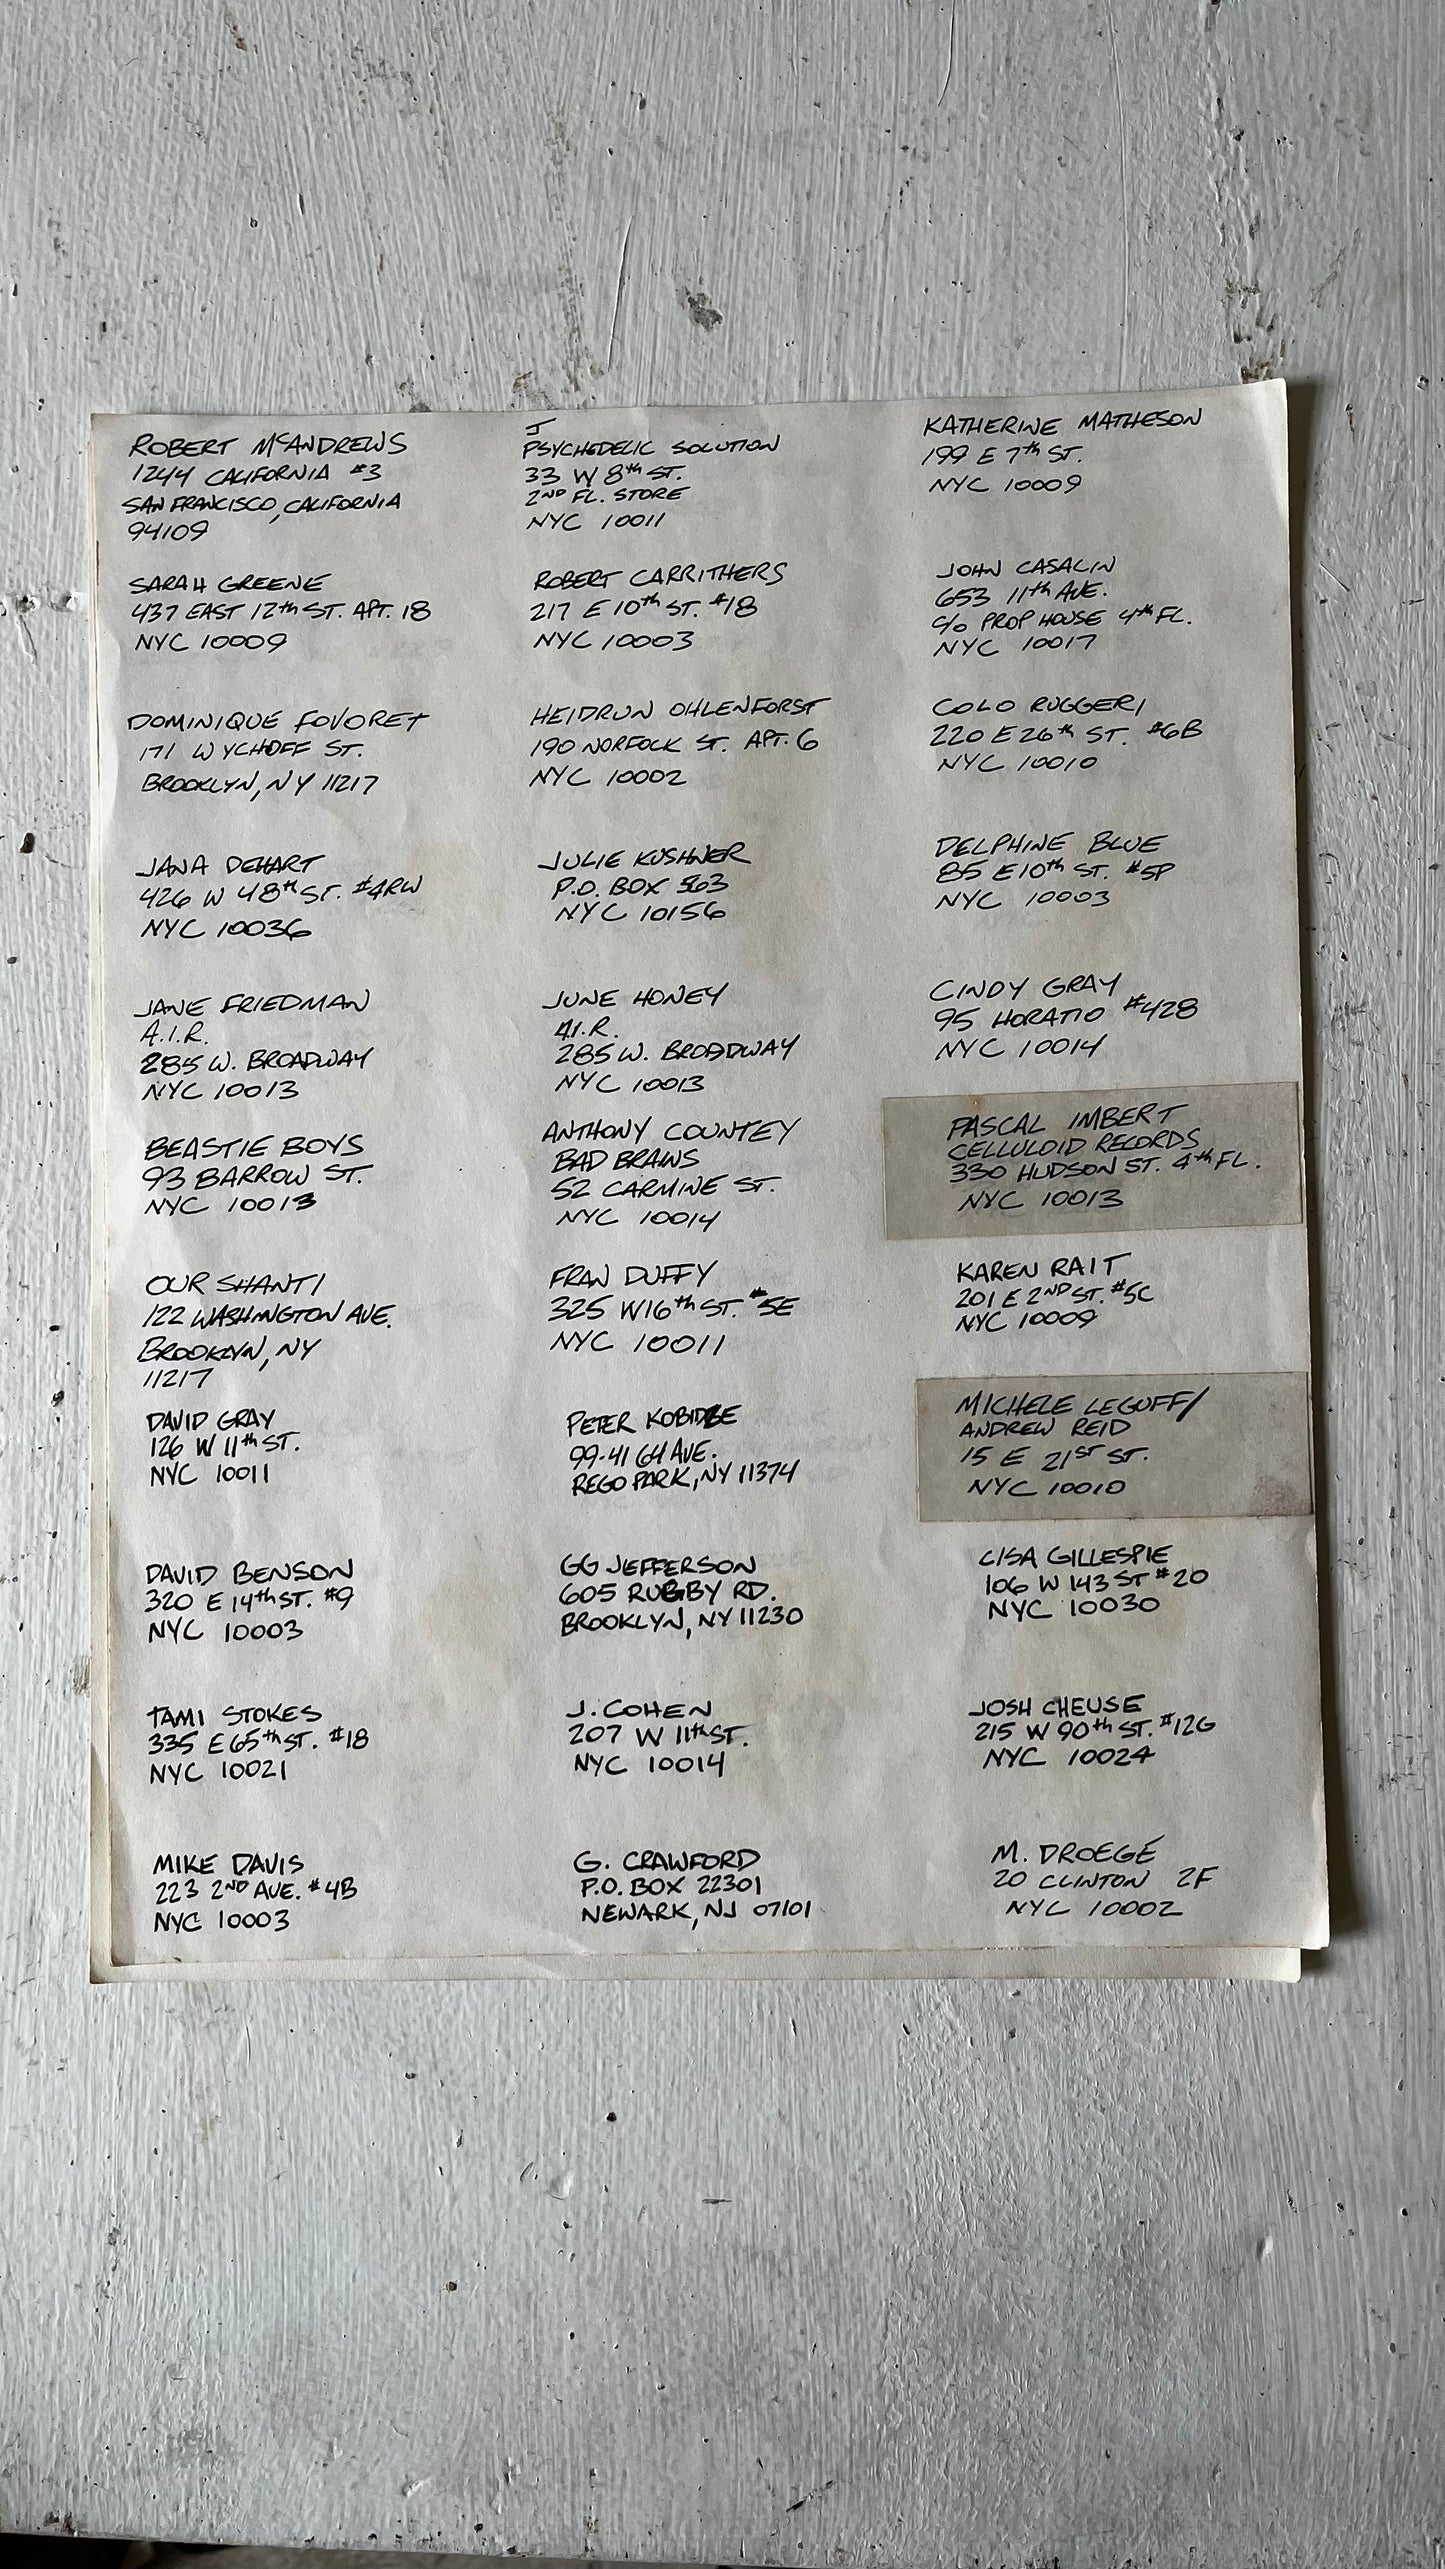 ROBERT McANDREWS
1244 CALIFORNIA #3
SAN FRANCISCO, CALIFORNIA
94109
SARAH GREENE
437 EAST 12th ST. APT. 18
NYC 10009
DOMINIQUE FOVORET
171 WYCHOFF ST.
BROOKLYN, NY 11217
JANA DEHART
426 W 48th ST. #4RW
NYC 10036
JANE FRIEDMAN
A.I.R.
285 W. BROADWAY
NYC 10013
BEASTIE BOYS
93 BARROW ST.
NYC 10013
OUR SHANTI
122 WASHINGTON AVE.
BROOKLYN, NY
11217
DAVID GRAY
126 W 11th ST.
NYC 10011
DAVID BENSON
320 E 14th ST. #9
NYC 10003
TAMI STOKES
335 E 65th ST. #18
NYC 10021
MIKE DAVIS
223 2ND AVE. #4B
NYC 10003
J
PSYCHEDELIC SOLUTION
33 W 8th ST.
2ND FL. STORE
NYC 10011
ROBERT CARRITHERS
217 E 10th ST. #18
NYC 10003
HEIDRUN OHLENFORST
190 NORFOCK ST. APT. 6
NYC 10002
JULIE KUSHNER
P.O. BOX 563
NYC 10156
JUNE HONEY
A.I.R.
285 W. BROADWAY
NYC 10013
ANTHONY COUNTEY
BAD BRAINS
52 CARMINE ST.
NYC 10014
FRAN DUFFY
325 W16th ST. #5E
NYC 10011
PETER
99-41 64 AVE.
REGO PARK, NY 11374
GG JEFFERSON
605 RUGBY RD.
BROOKLYN, NY 11230
J. COHEN
207 W 11th ST.
NYC 10014
G. CRAWFORD
P.O. BOX 22301
NEWARK, NJ 07101
KATHERINE MATHESON
199 E 7th ST.
NYC 10009
JOHN CASALIN
653 11th AVE.
c/o PROP HOUSE 4th FL.
NYC 10017
COLO RUGGERI
220 E 26th ST. #6B
NYC 10010
DELPHINE BLUE
85 E 10th ST. #5P
NYC 10003
CINDY GRAY
95 HORATIO #428
NYC 10014
PASCAL IMBERT
CELLULOID RECORDS
330 HUDSON ST. 4th FL.
NYC 10013
KAREN RAIT
201 E 2ND ST. #5C
NYC 10009
MICHELE LEGUFF/
ANDREW REID
15 E 21ST ST.
NYC 10010
LISA GILLESPIE
106 W 143 ST #20
NYC 10030
JOSH CHEUSE
215 W 90th ST. #12G
NYC 10024
M. DROEGE
20 CLINTON 2F
NYC 10002